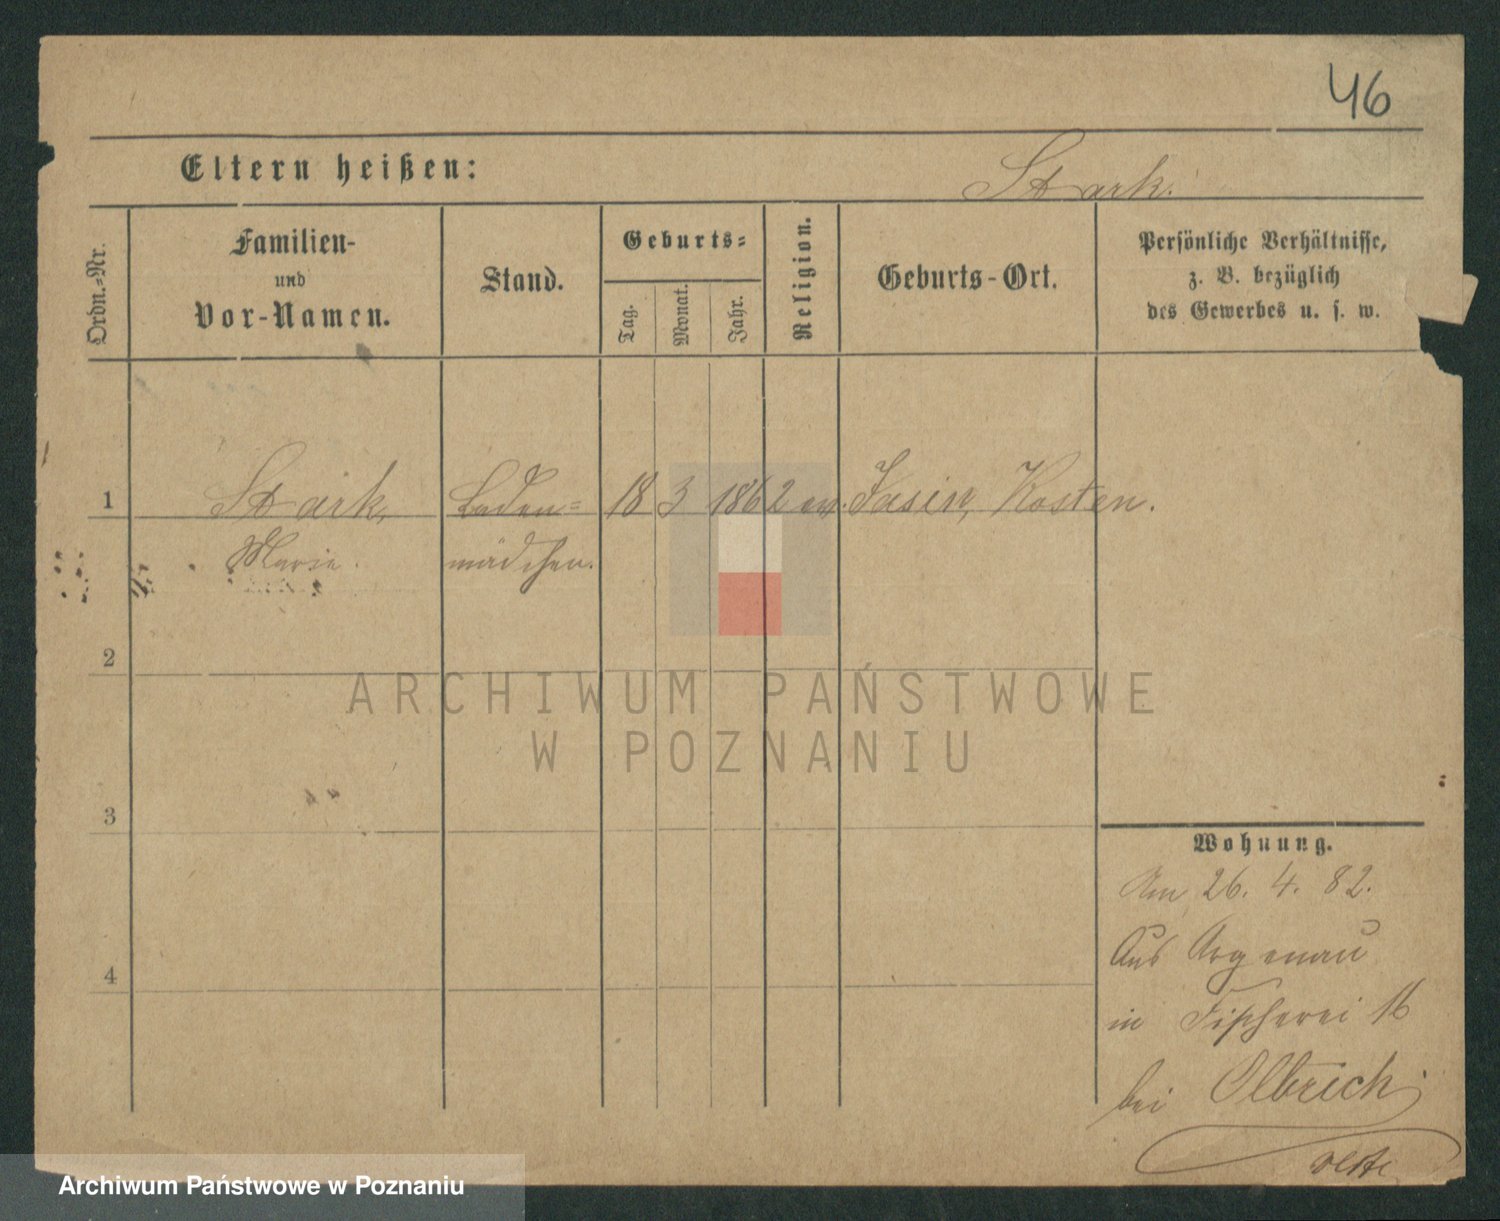 46
Eltern heißen:
Stark.
Ordn.-Nr.
Familien-
und
Vor-Namen.
Stand.
Geburts-
Tag.
Monat.
Jahr.
Religion.
Geburts-Ort.
Persönliche Verhältnisse,
z. B. bezüglich
des Gewerbes u. s. w.
1
Stark,
Laden-
18
3
1862
ev.
Jasin, Kosten.
Marie.
mädchen.
2
ARCHIWUM PAŃSTWOWE
W POZNANIU
3
Wohnung.
Am 26. 4. 82.
Aus Argenau
4
in Fischerei 16
bei Olbrich
Archiwum Państwowe w Poznaniu